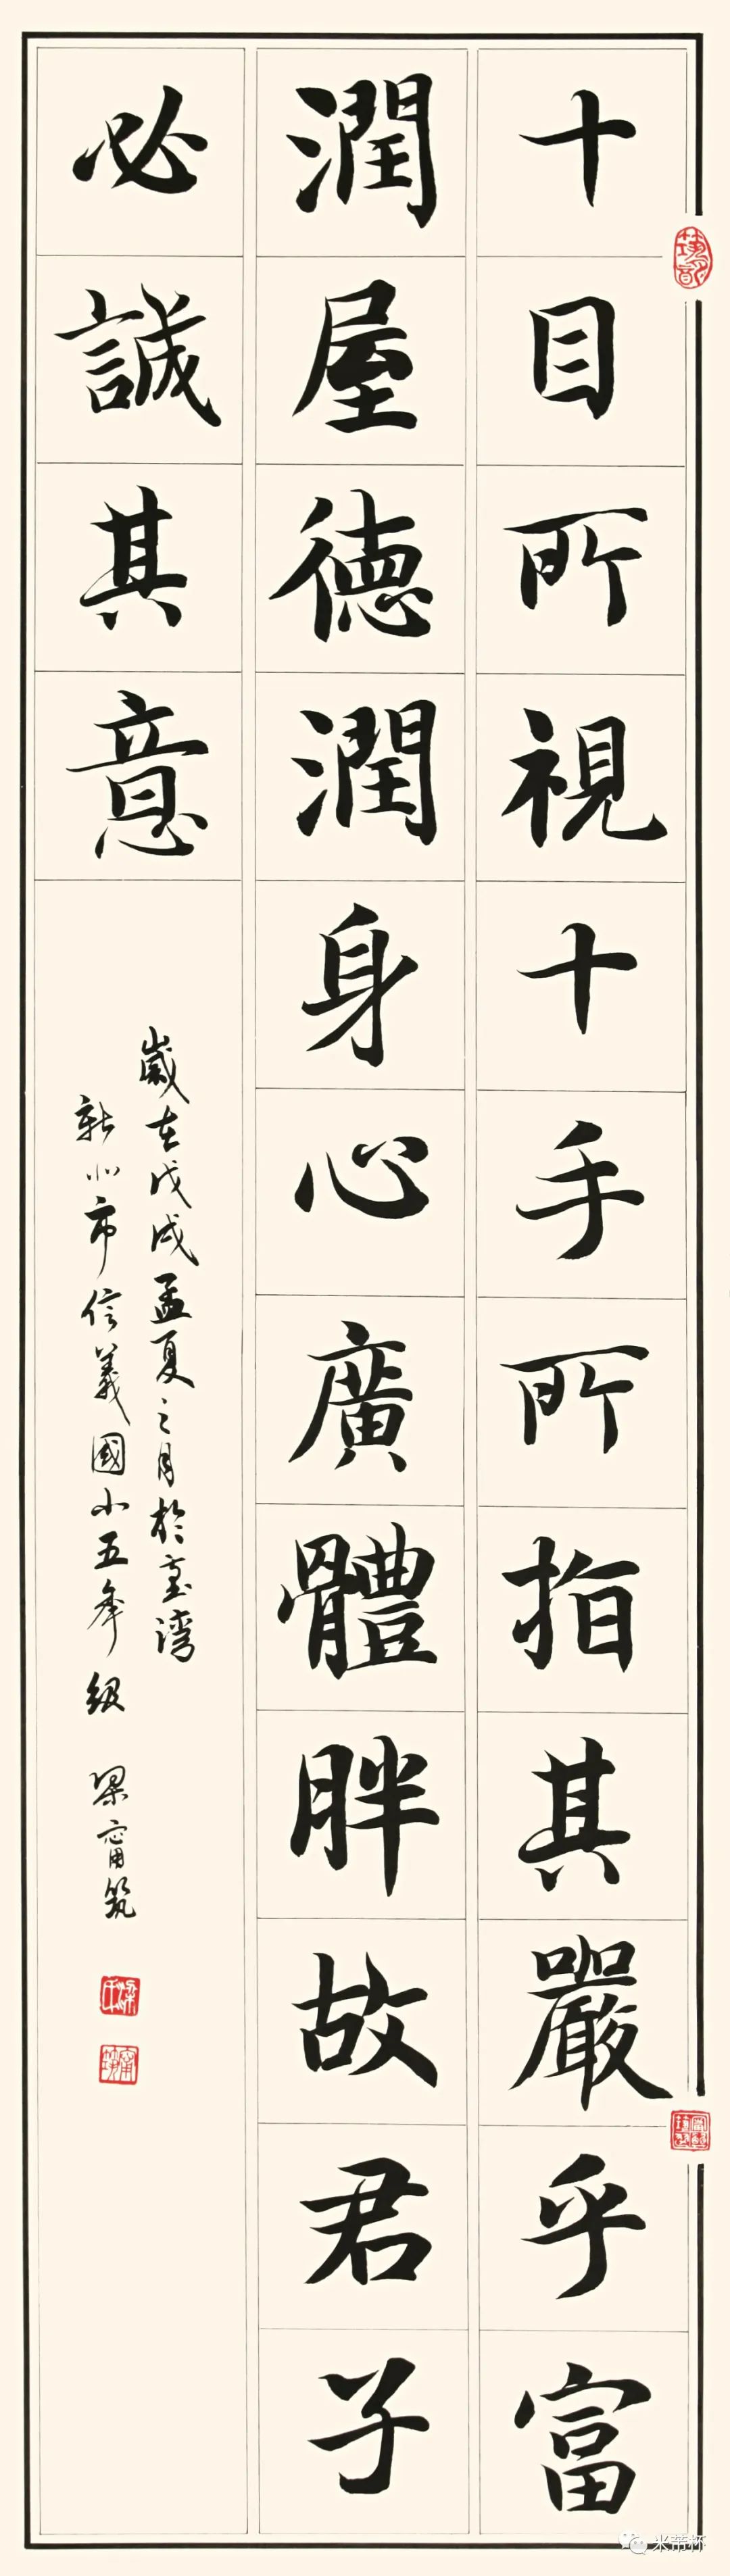 十目所視十手所指其嚴乎富
潤屋德潤身心廣體胖故君子
必誠其意
歲在戊戌孟夏之月於臺灣
新北市信義國小五年級 梁甯筑
米芾杯